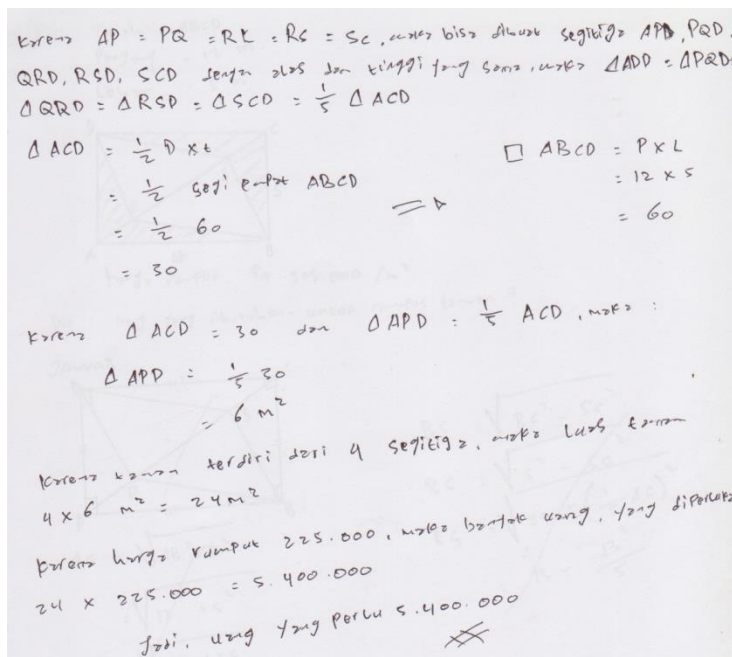 Karena AP = PQ = RK = RS = SC, maka bisa dibuat segitiga APD, PQD,
QRD, RSD, SCD dengan alas dan tinggi yang sama, maka Δ ADD = Δ PQD =
Δ QRD = Δ RSD = Δ SCD = 1/5 Δ ACD
Δ ACD = 1/2 D x t
= 1/2 segi empat ABCD
= 1/2 60
= 30
□ ABCD = P x L
= 12 x 5
= 60
Karena Δ ACD = 30 dan Δ APD = 1/5 ACD, maka :
Δ APD = 1/5 30
= 6 m²
Karena taman terdiri dari 4 segitiga, maka luas taman
4 x 6 m² = 24 m²
Karena harga rumput 225.000, maka banyak uang, yang diperlukan
24 x 225.000 = 5.400.000
Jadi, uang yang perlu 5.400.000